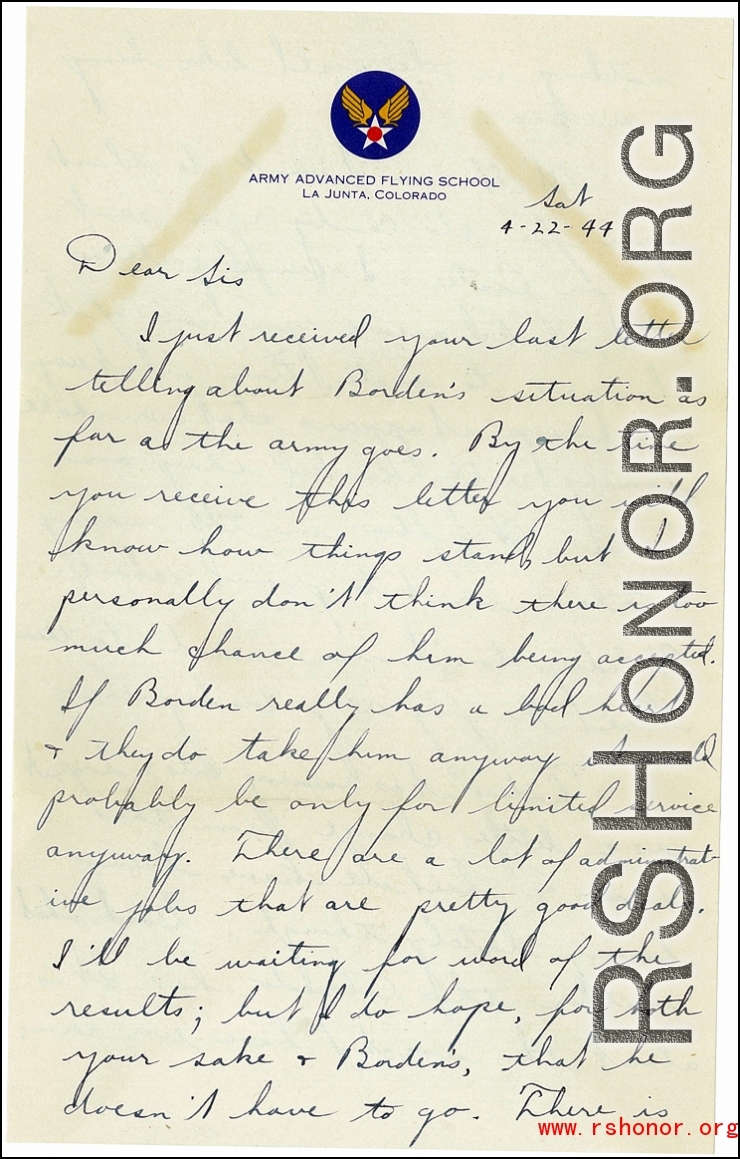 ARMY ADVANCED FLYING SCHOOL
LA JUNTA, COLORADO
Sat
4-22-44
Dear Sis
I just received your last letter
telling about Borden's situation as
far as the army goes. By the time
you receive this letter you will
know how things stand, but I
personally don't think there is too
much chance of him being accepted.
If Borden really has a bad heart
& they do take him anyway it would
probably be only for limited service
anyway. There are a lot of administrat-
ive jobs that are pretty good deals.
I'll be waiting for word of the
results; but I do hope, for both
your sake & Borden's, that he
doesn't have to go. There is
RSHONOR.ORG
www.rshonor.org